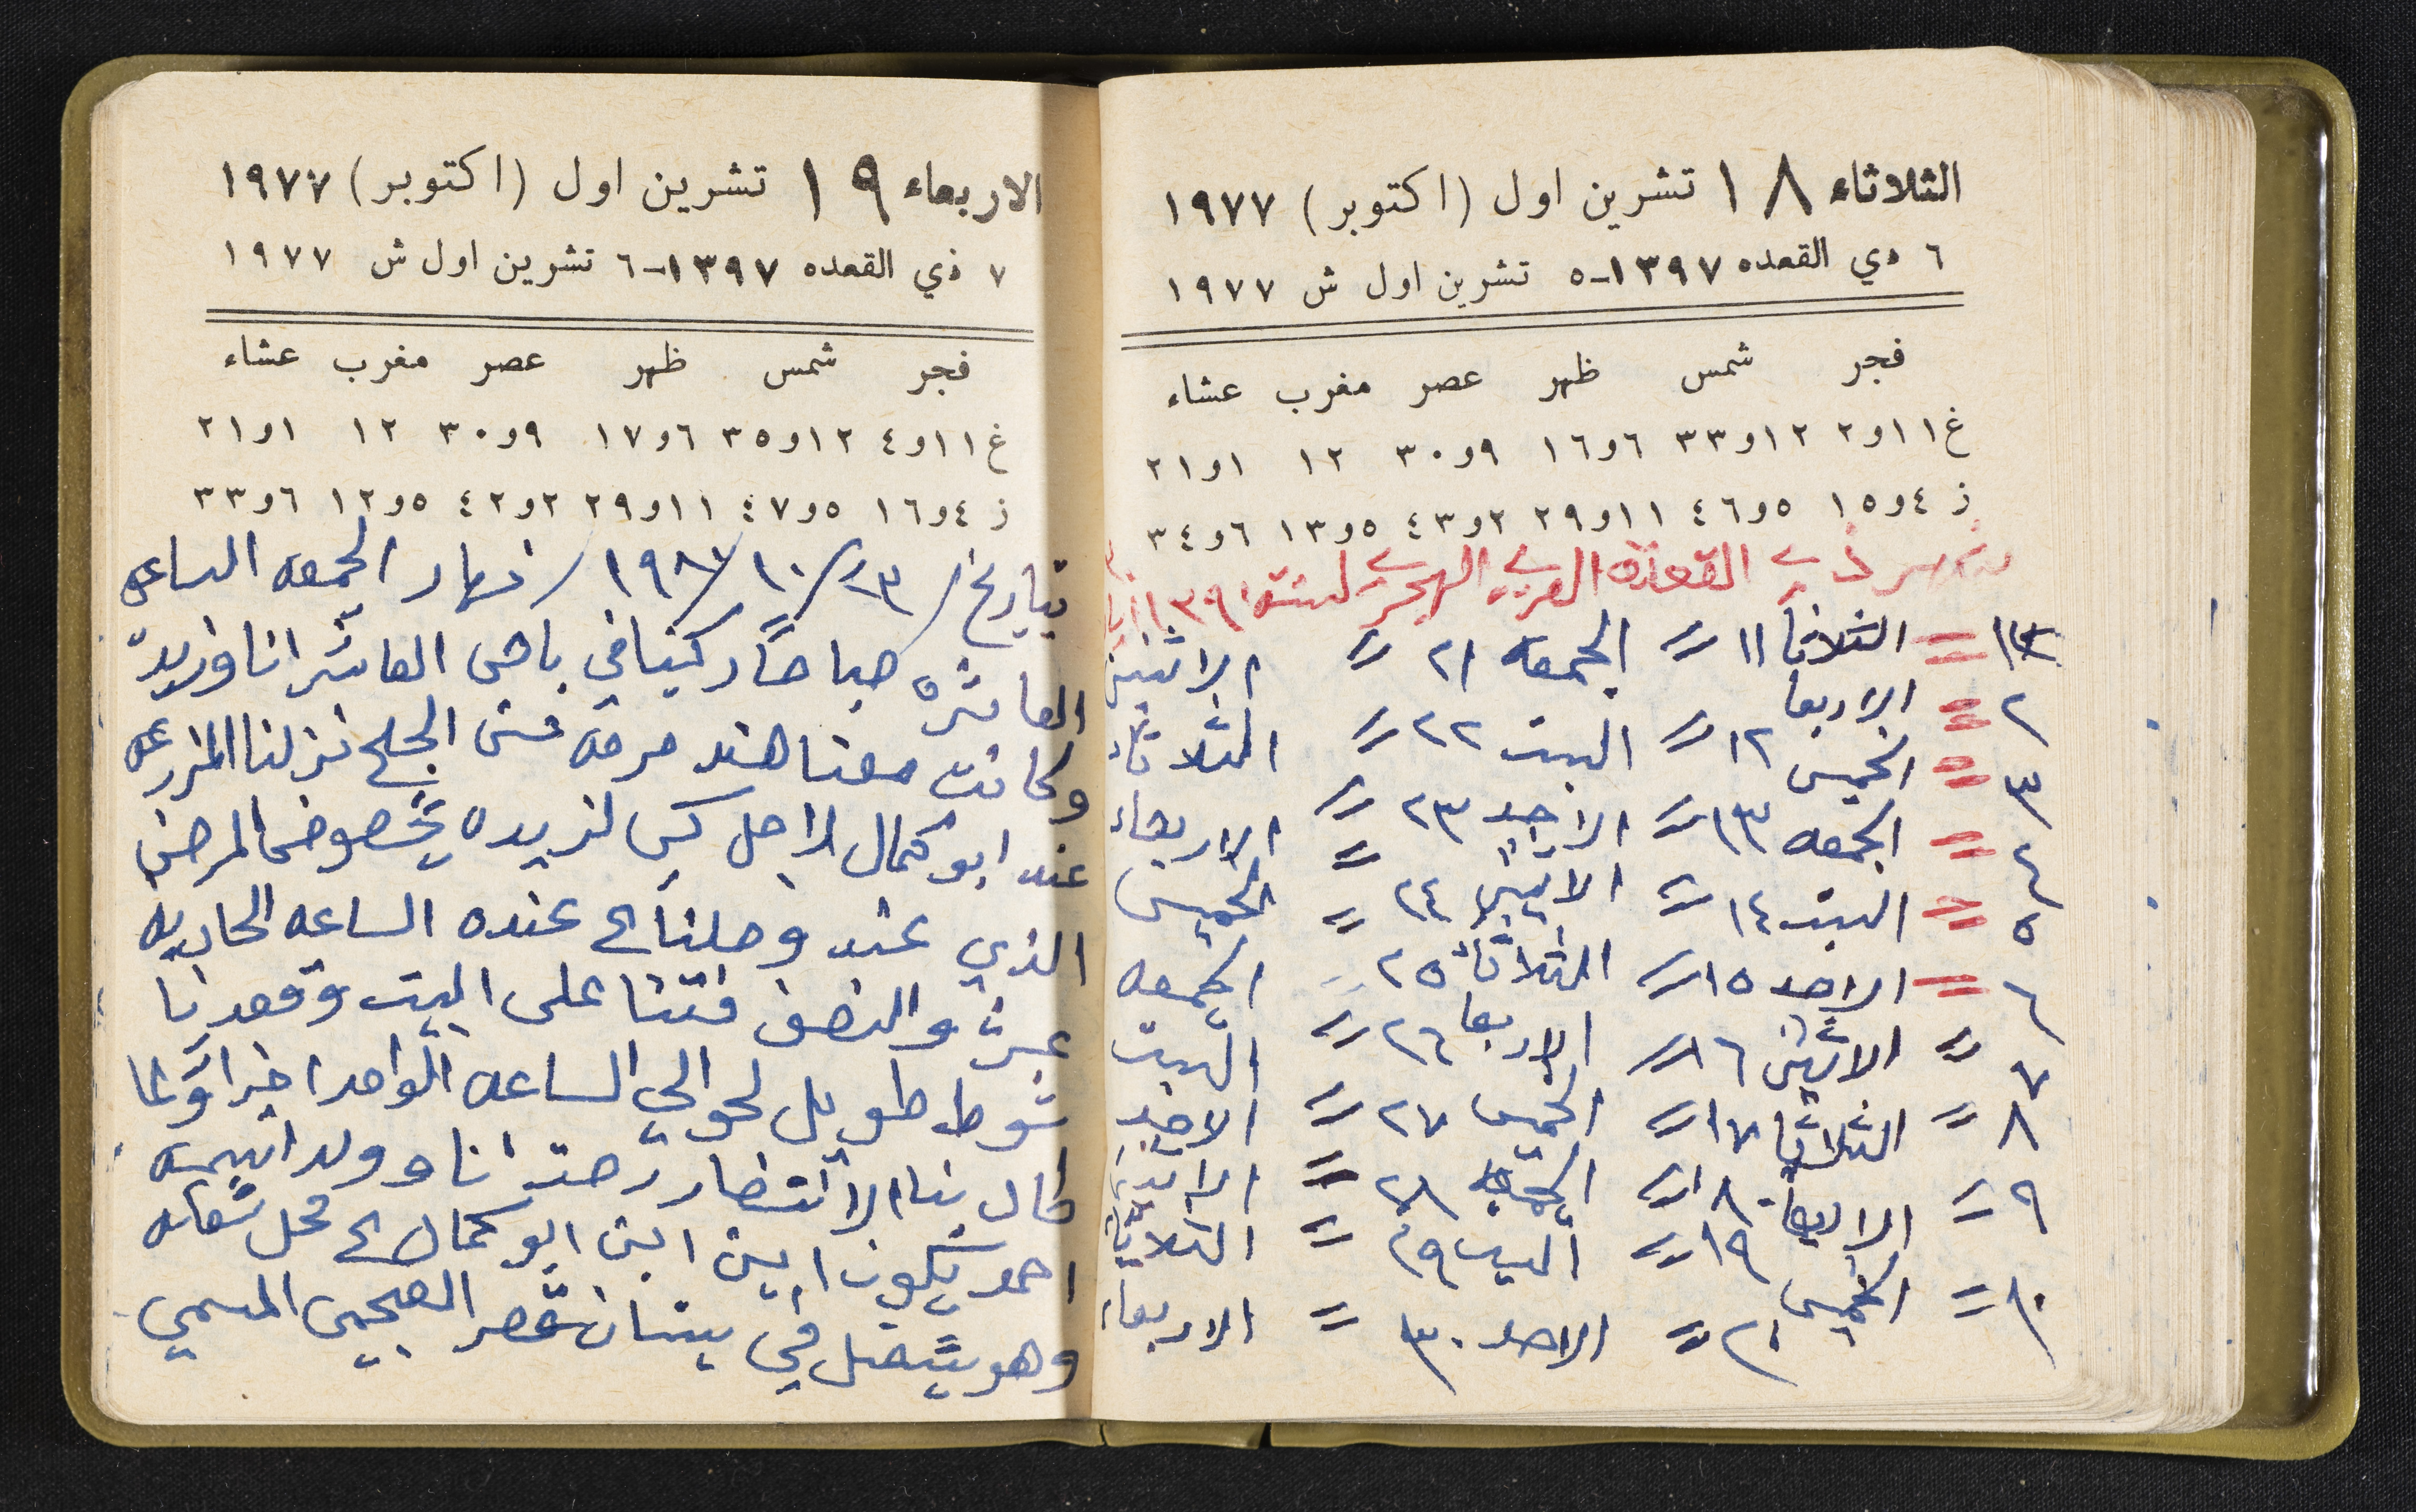 الثلاثاء ١٨ تشرين اول (اكتوبر) ١٩٧٧
٦ ذي القعده ١٣٩٧-٥ تشرين اول ش ١٩٧٧
فجر شمس ظهر عصر مغرب عشاء
غ ١١و٢ ١٢و٣٣ ٦و١٦ ٩و٣٠ ١٢ ١و٢١
ز ٤و١٥ ٥و٤٦ ١١و٢٩ ٢و٤٣ ٥و١٣ ٦و٣٤
شهر ذي القعدة العربي الهجري لسنة
١ = الثلاثا ١١ = الجمعه ٢١ = الاثنين
٢ = الاربعا ١٢ = السبت ٢٢ = الثلاثاء
٣ = الخميس ١٣ = الاحد ٢٣ = الاربعاء
٤ = الجمعه ١٤ = الاثنين ٢٤ = الخميس
٥ = السبت ١٥ = الثلاثاء ٢٥ = الجمعه
٦ = الاحد ١٦ = الاربعا ٢٦ = السبت
٧ = الاثنين ١٧ = الخميس ٢٧ = الاحد
٨ = الثلاثا ١٨ = الجمعه ٢٨ = الاثنين
٩ = الاربعا ١٩ = السبت ٢٩ = الثلاثا
١٠ = الخميس ٢٠ = الاحد ٣٠ = الاربعاء
الاربعاء ١٩ تشرين اول (اكتوبر) ١٩٧٧
٧ ذي القعده ١٣٩٧-٦ تشرين اول ش ١٩٧٧
فجر شمس ظهر عصر مغرب عشاء
غ ١١و٤ ١٢و٣٥ ٦و١٧ ٩و٣٠ ١٢ ١و٢١
ز ٤و١٦ ٥و٤٧ ١١و٢٩ ٢و٤٢ ٥و١٢ ٦و٣٣
بتاريخ / ٢٣/١٠/١٩٨٧/ نهار الجمعه الساعه
العاشره صباحاً ركبنا في باص العاشر انا وزيدة
وكانت معنا هند مرة حسن الجلح نزلنا المزرعه
عند ابو كمال لاجل كبس لزيده بخصوص المرض
الذي عند وصلنا الى عنده الساعه الحاديه
عشرة والنصف فتنا على البيت وقعدنا
شوط طويل لحوالي الساعه الواحدا اخيراً ولما
طال بنا الانتضار رحت انا وولد اسمه
احمد بيكون ابن ابن ابو كمال الى محل شغله
وهو بيشتغل في بستان قصر الصحبي المسمي